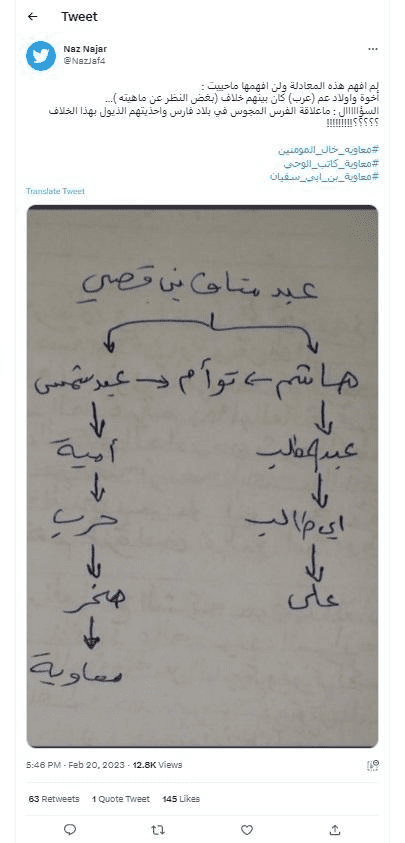 Tweet
Naz Najar
@NazJaf4
لم افهم هذه المعادلة ولن افهمها ماحييت :
أخوة واولاد عم (عرب) كان بينهم خلاف (بغض النظر عن ماهيته )...
السؤاااااال : ماعلاقة الفرس المجوس في بلاد فارس واحذيتهم الذيول بهذا الخلاف
؟؟؟؟؟!!!!!!!!!
#معاويه_خال_المومنين
#معاوية_كاتب_الوحي
#معاوية_بن_ابي_سفيان
Translate Tweet
عبد مناف بن قصي
هاشم ← توأم → عبد شمس
عبد المطلب أمية
ابي طالب حرب
على صخر
معاوية
5:46 PM · Feb 20, 2023 · 12.8K Views
63 Retweets 1 Quote Tweet 145 Likes